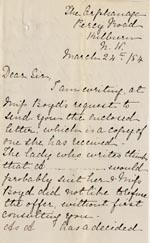 The Orphanage
Percy Road
Kilburn
N.W.
March 24th /84
Dear Sir,
I am writing at
Miss Boyd's request to
send you the enclosed
letter, which is a copy of
one she has received.
The lady who writes thinks
that would
probably suit her & Miss
Boyd did not like to
the offer, without first
consulting you.
has a decided